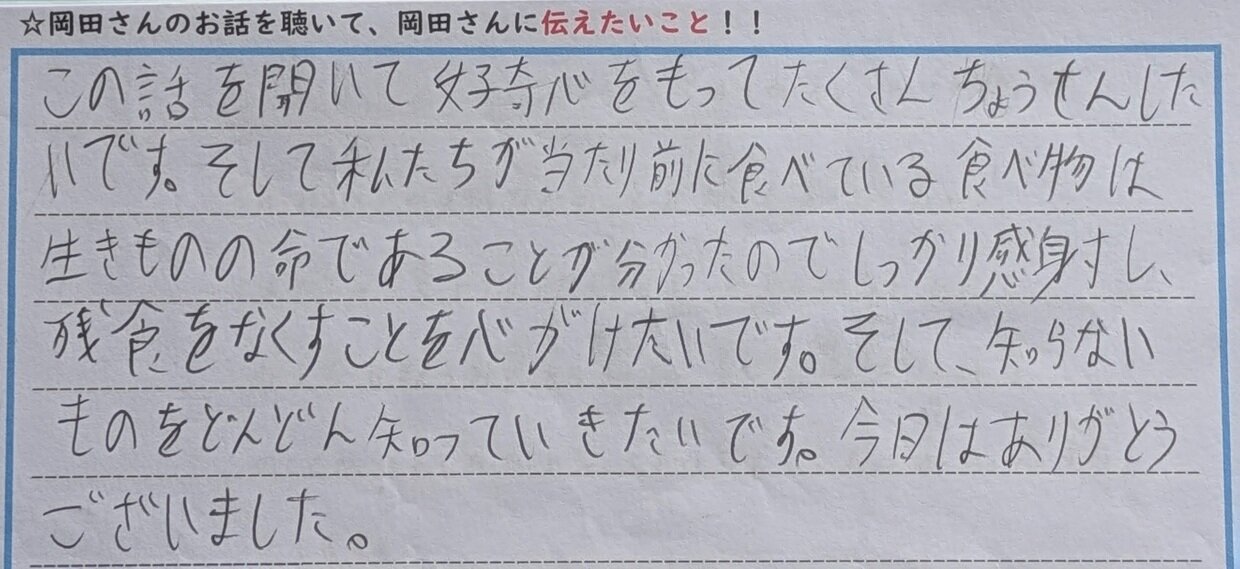 ☆岡田さんのお話を聴いて、岡田さんに伝えたいこと！！
この話を聞いて好奇心をもってたくさんちょうせんした
いです。そして私たちが当たり前に食べている食べ物は
生きものの命であることが分かったのでしっかり感身すし、
残食をなくすことを心がけたいです。そして、知らない
ものをどんどん知っていきたいです。今日はありがとう
ございました。